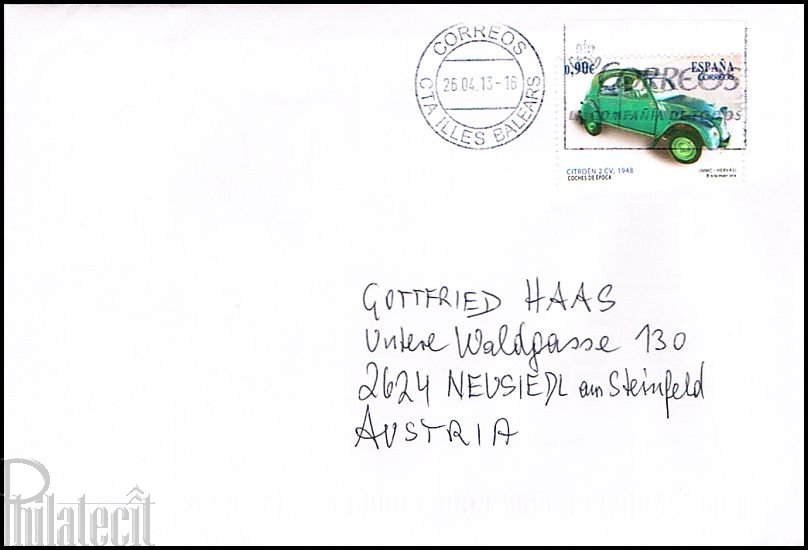 CORREOS
26.04.13-16
CTA ILLES BALEARS
0,90€
ESPAÑA
CORREOS
CORREOS
LA COMPAÑIA DE TODOS
CITROËN 2 CV. 1948
COCHES DE ÉPOCA
(MMC - HERVAS)
GOTTFRIED HAAS
Untere Waldgasse 130
2624 NEUSIEDL am Steinfeld
AUSTRIA
Philatecît